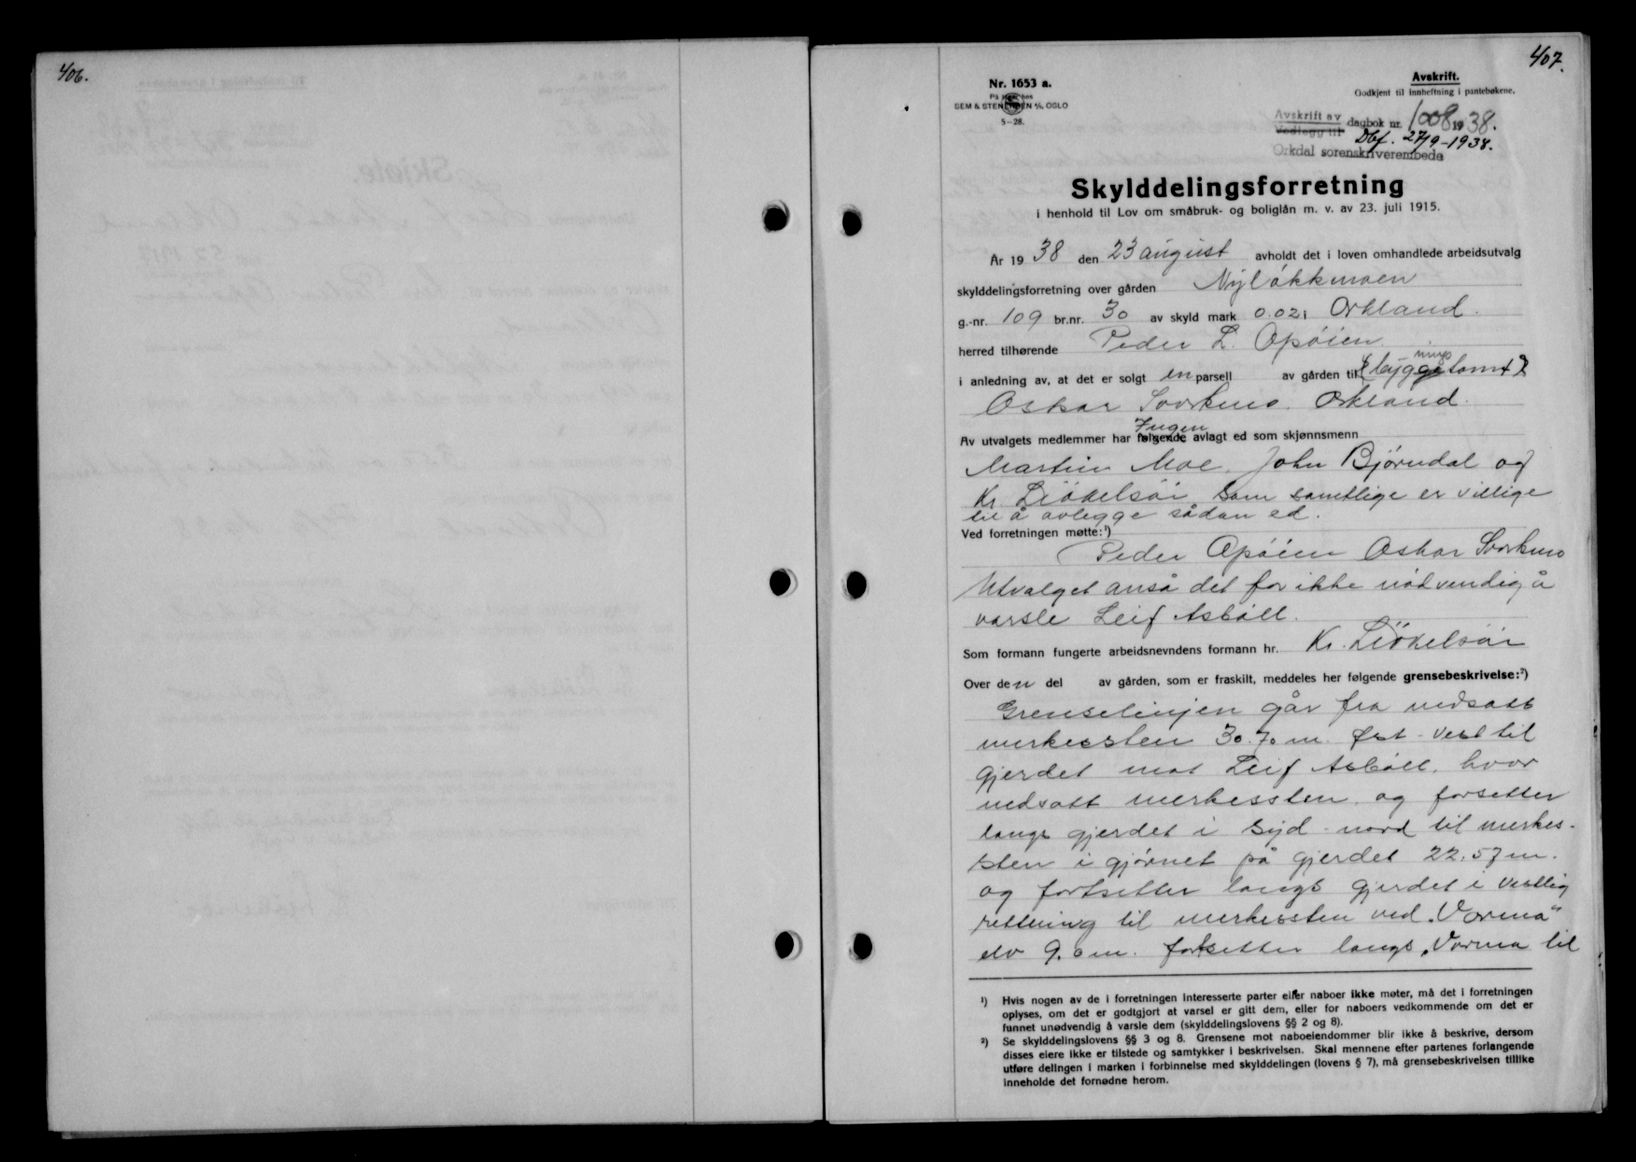 406.
407.
Nr. 1653 a.
På lager hos
SEM & STENERSEN A/S, OSLO
5—28.
Avskrift.
Godkjent til innheftning i pantebøkene.
Avskrift av
Vedlegg til dagbok nr. 1008 1938.
Dbf. 27/9-1938.
Orkdal sorenskriverembede
Skylddelingsforretning
i henhold til Lov om småbruk- og boliglån m. v. av 23. juli 1915.
År 19 38 den 23 august avholdt det i loven omhandlede arbeidsutvalg
skylddelingsforretning over gården Nyløkkmoen
g.-nr. 109 br.nr. 30 av skyld mark 0.02, Orkland.
herred tilhørende Peder L. Opøien
i anledning av, at det er solgt en parsell av gården til (byggetomt)
Oskar Svorkmo. Orkland.
Av utvalgets medlemmer har Ingen følgende avlagt ed som skjønnsmenn
Martin Moe. John Bjørndal og
Kr. Liøkelsøi, som samtlige er villige
til å avlegge sådan ed.
Ved forretningen møtte:¹)
Peder Opøien Oskar Svorkmo
Utvalget anså det for ikke nødvendig å
varsle Leif Asbøll.
Som formann fungerte arbeidsnevndens formann hr. Kr. Liøkelsøi
Over den del av gården, som er fraskilt, meddeles her følgende grensebeskrivelse:²)
Grenselinjen går fra nedsatt
merkessten 30.70 m. Øst - vest til
gjerdet mot Leif Asbøll, hvor
nedsatt merkessten og forsetter
langs gjerdet i syd - nord til merkes-
sten i gjørnet på gjerdet 22.57 m.
og fortsetter langs gjerdet i vestlig
rettning til merkessten ved „Vorma"
elv 9.0 m. fortsetter langs „Vorma til
¹) Hvis nogen av de i forretningen interesserte parter eller naboer ikke møter, må det i forretningen
oplyses, om det er godtgjort at varsel er gitt dem, eller for naboers vedkommende om det er
funnet unødvendig å varsle dem (skylddelingslovens §§ 2 og 8).
²) Se skylddelingslovens §§ 3 og 8. Grensene mot naboeiendommer blir ikke å beskrive, dersom
disses eiere ikke er tilstede og samtykker i beskrivelsen. Skal mennene efter partenes forlangende
utføre delingen i marken i forbinnelse med skylddelingen (lovens § 7), må grensebeskrivelsen tillike
inneholde det fornødne herom.